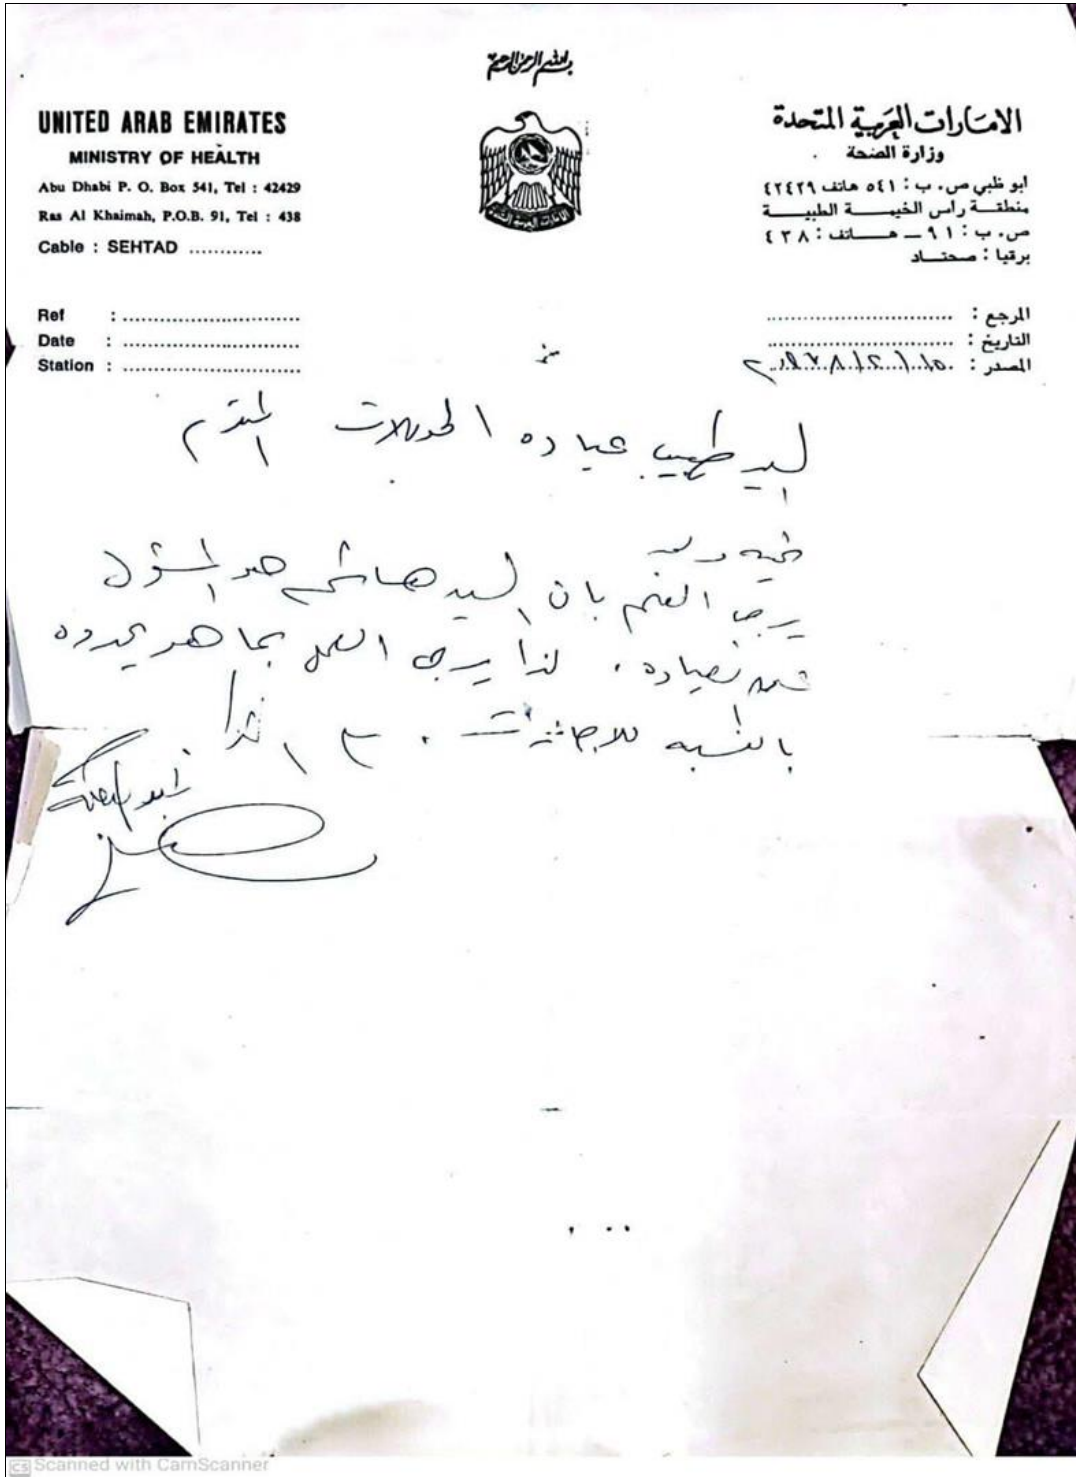 بسم الله الرحمن الرحيم
UNITED ARAB EMIRATES
MINISTRY OF HEALTH
Abu Dhabi P. O. Box 541, Tel : 42429
Ras Al Khaimah, P.O.B. 91, Tel : 438
Cable : SEHTAD ............
الامارات العربية المتحدة
وزارة الصحة
ابو ظبي ص. ب : ٥٤١ هاتف ٤٢٤٢٩
منطقة راس الخيمة الطبية
ص. ب : ٩١ ـ هاتف : ٤٣٨
برقيا : صحتاد
Ref : ..............................
Date : ..............................
Station : ..............................
المرجع : ..............................
التاريخ : ..............................
المصدر :
السيد طبيب عياده الحويلات المحترم
تحيه وبعد
يرجى العلم بان السيد هاشم هو المسؤول
عن العياده . لذا يرجى العمل بما هو يحدده
بالنسبه للاجازات .
Scanned with CamScanner